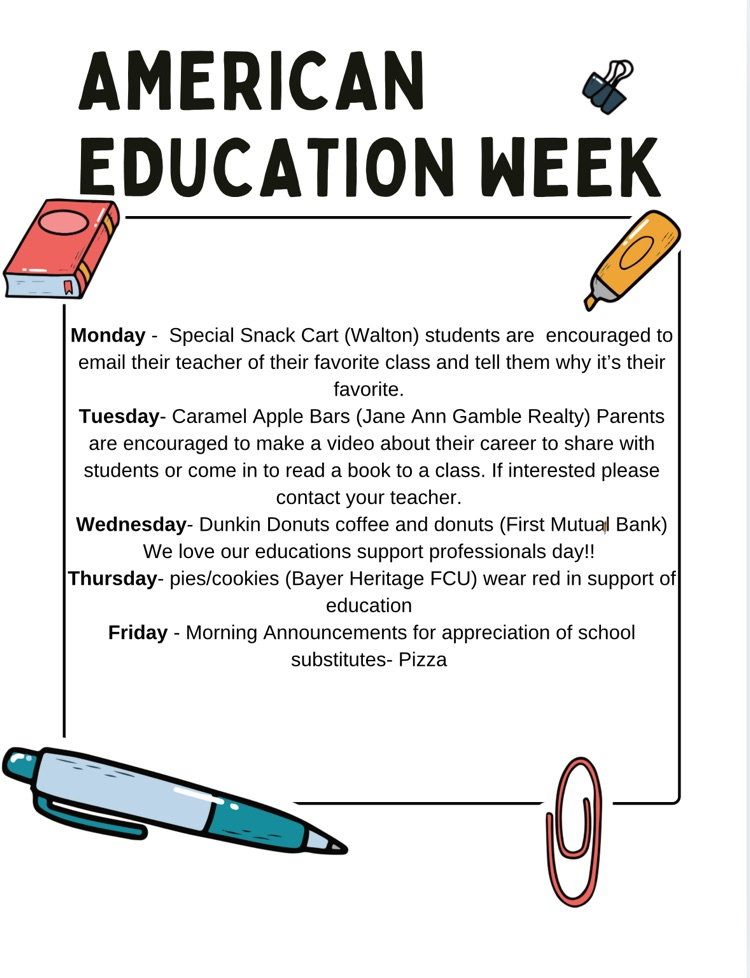 AMERICAN
EDUCATION WEEK
Monday -  Special Snack Cart (Walton) students are  encouraged to
email their teacher of their favorite class and tell them why it’s their
favorite.
Tuesday- Caramel Apple Bars (Jane Ann Gamble Realty) Parents
are encouraged to make a video about their career to share with
students or come in to read a book to a class. If interested please
contact your teacher.
Wednesday- Dunkin Donuts coffee and donuts (First Mutual Bank)
We love our educations support professionals day!!
Thursday- pies/cookies (Bayer Heritage FCU) wear red in support of
education
Friday - Morning Announcements for appreciation of school
substitutes- Pizza